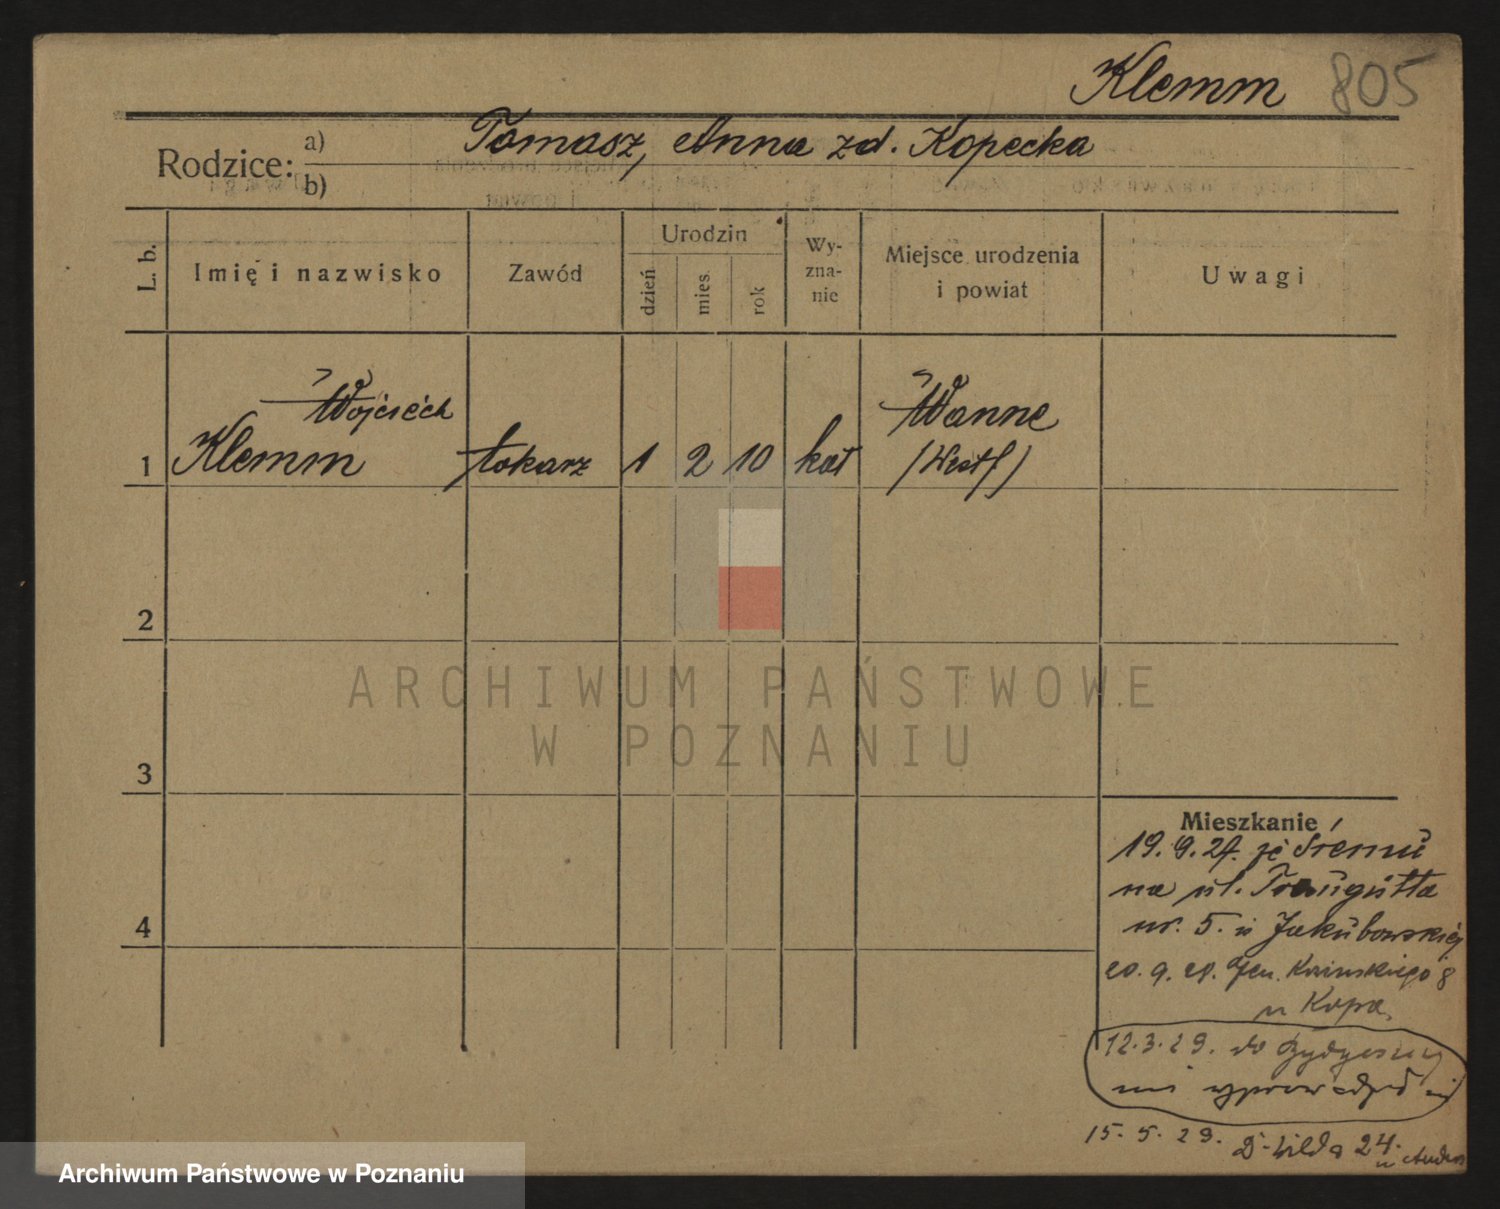 Klemm 805
Rodzice: a) Tomasz, Anna zd. Kopecka
b)
L. b.
Imię i nazwisko
Zawód
Urodzin
dzień
mies.
rok
Wy-
zna-
nie
Miejsce urodzenia
i powiat
Uwagi
Wojciech
Wanne
1 Klemm tokarz 1 2 10 kat (Westf)
2
3
4
Mieszkanie
19. 9. 27. ze Śremu
na ul. Traugutta
nr. 5. u Jakubowskiej
20. 9. 28. Gen. 8
u Kopa.
12. 3. 29. do Bydgoszczy
15. 5. 29. D-Wilda 24.
u
ARCHIWUM PAŃSTWOWE
W POZNANIU
Archiwum Państwowe w Poznaniu